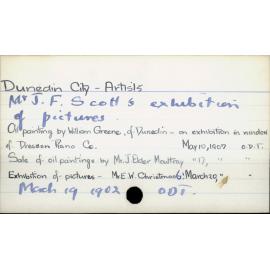 Dunedin City - Artists
Mr J. F. Scott's exhibition
of pictures.
Oil painting by William Greene, of Dunedin - on exhibition in window
of Dresden Piano Co. May 10, 1907 O.D.T.
Sale of oil paintings by Mr. J Elder Moultray " 17, " "
Exhibition of pictures - Mr E.W. Christmas 6: March 29, " "
March 19 1902 ODT.